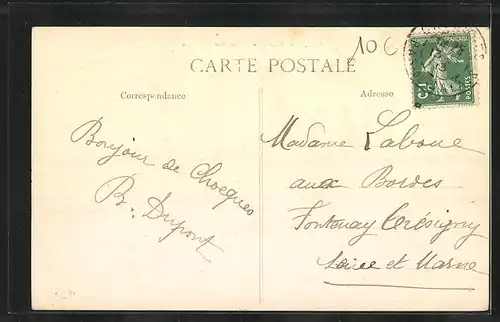 10 €
CARTE POSTALE
Correspondance
Adresse
Bonjour de Chocques
B. Dupont
Madame Laboue
aux Bordes
Fontenay Trésigny
Seine et Marne
FRANÇAISE
5c
POSTES